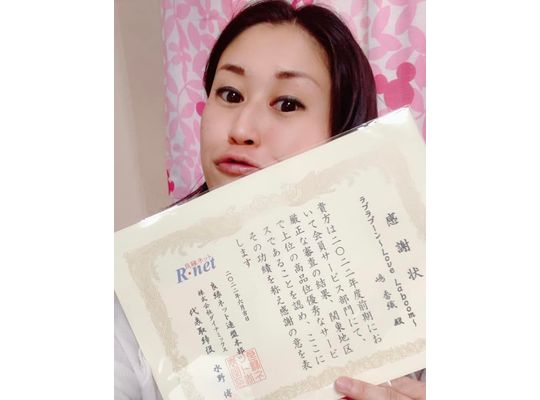 感謝状
ラブラブーン~Love Laboom~
嶋 香織 殿
貴方は二〇二二年度前期にお
いて会員サービス部門にて、
厳正な審査の結果、関東地区
で上位の高品位優秀なサービ
スであることを認め、ここに
その功績を称え感謝の意を表
します
二〇二二年六月吉日
良縁ネット連盟本部
株式会社ダイナミックス
代表取締役 水野 博
良縁ネット
R・net